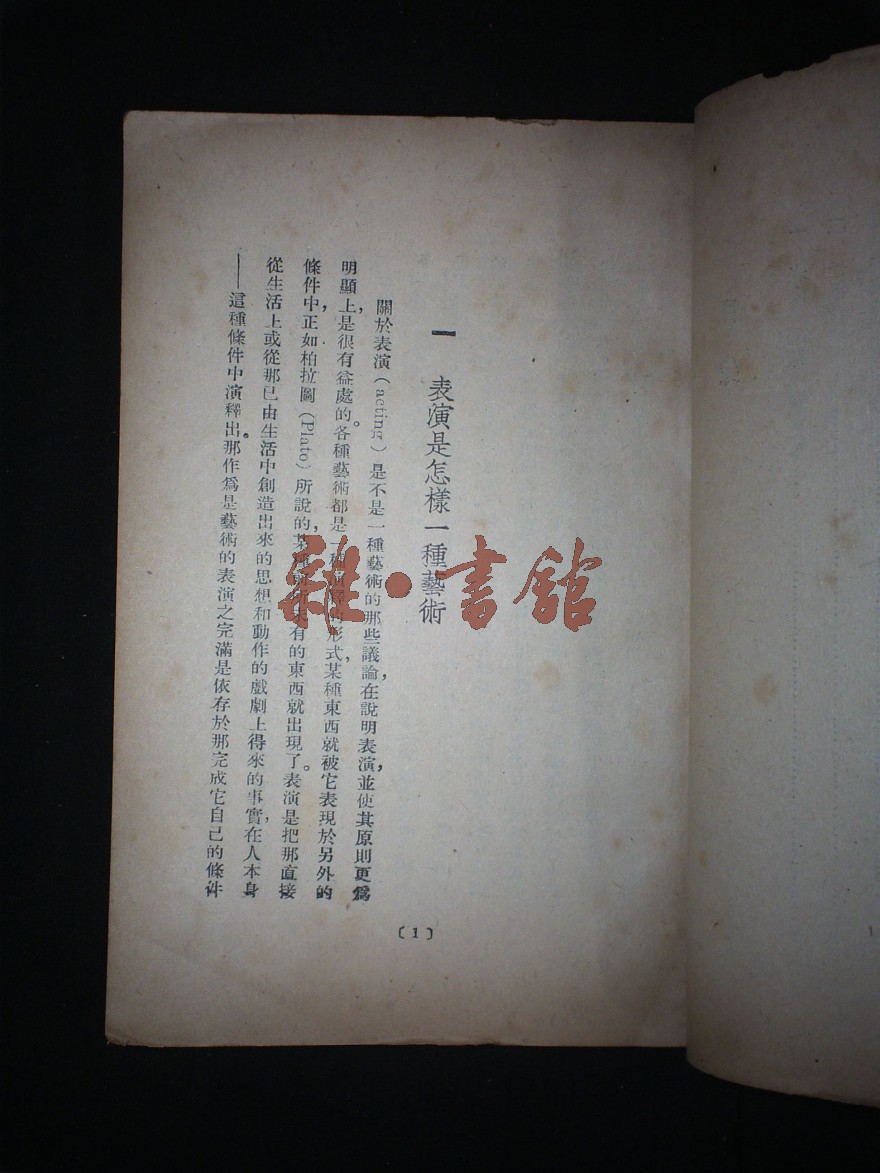 一 表演是怎樣一種藝術
關於表演(acting)是不是一種藝術的那些議論,在說明表演,並使其原則更爲
明顯上,是很有益處的。各種藝術都是一種演釋的形式,某種東西就被它表現於另外的
條件中,正如柏拉圖(Plato)所說的,某種前所未有的東西就出現了。表演是把那直接
從生活上或從那已由生活中創造出來的思想和動作的戲劇上得來的事實,在人本身
——這種條件中演釋出。那作爲是藝術的表演之完滿是依存於那完成它自己的條件
(1)
雜·書館